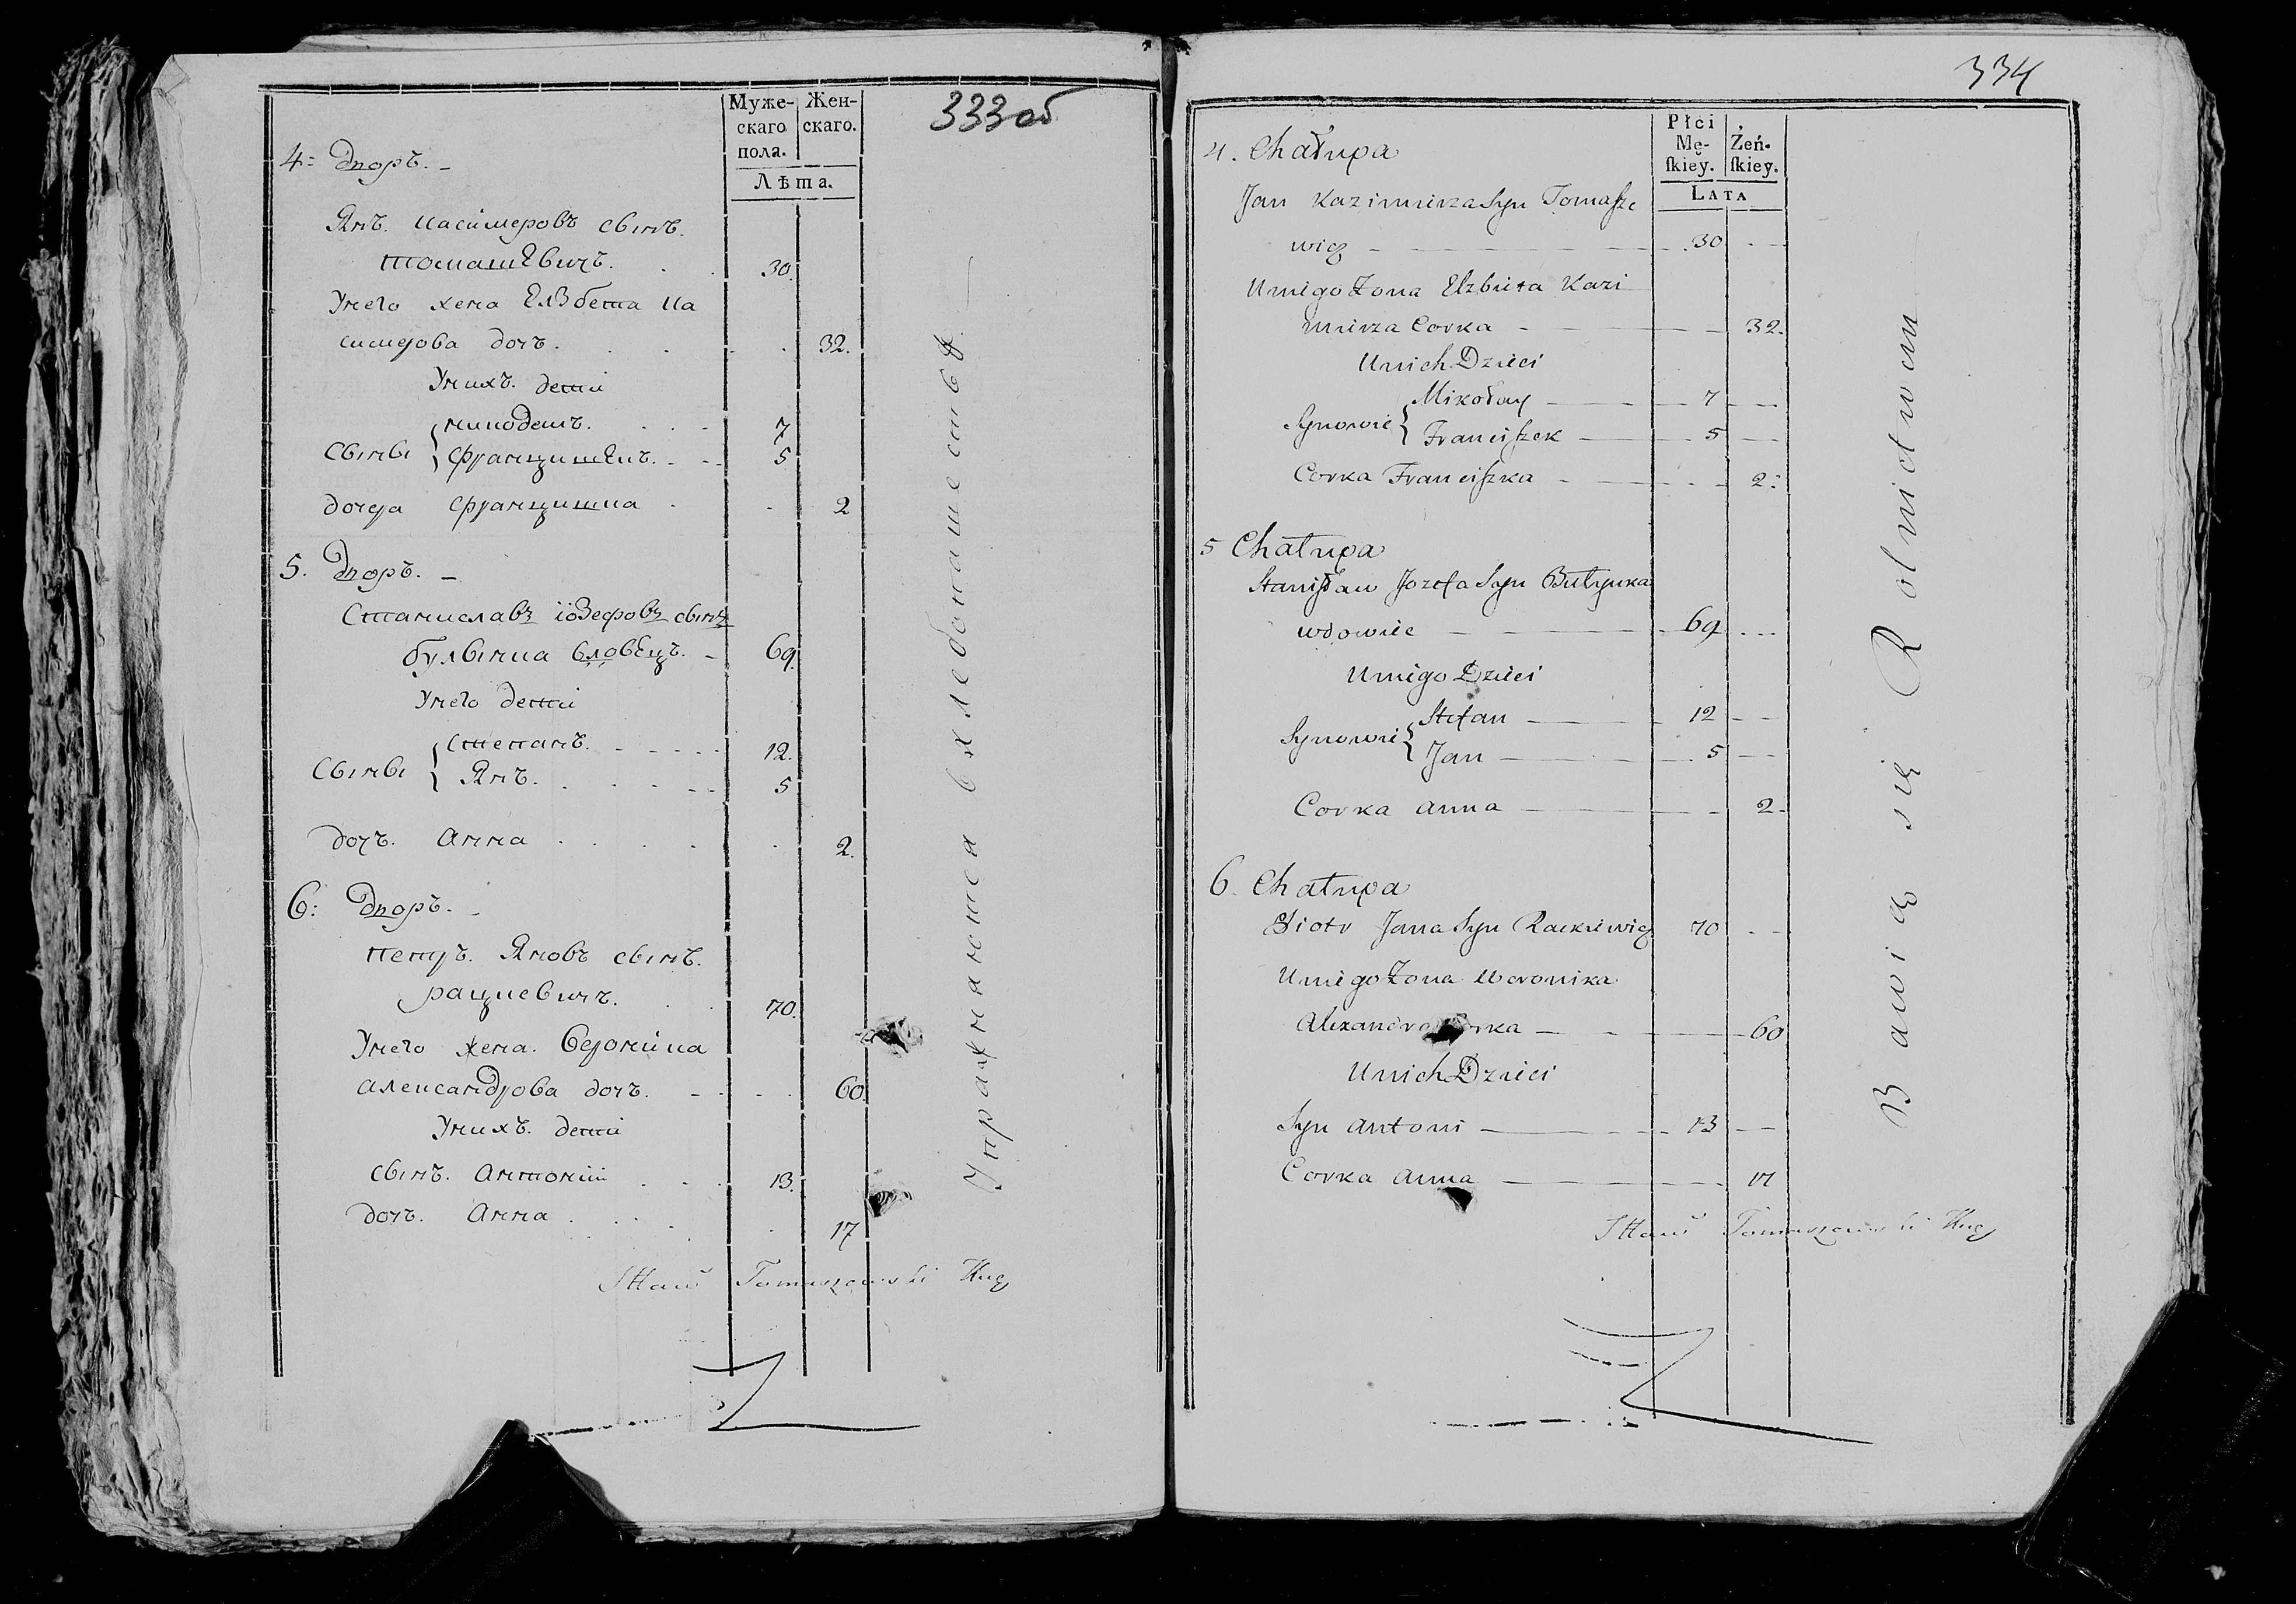 333 об
Муже-
скаго
пола.
Жен-
скаго.
Лѣта.
4: Дворъ.
Янъ. Касимеровъ сынъ.
томашЕвичъ. 30.
Унего жена Елзбета Ка
симерова дочъ. 32.
Унихъ. дети
Сыны { миколаи. 7
францишЕкъ. 5
дочра францишка 2
5. Дворъ.
Станиславъ іозефовъ сынъ
булынка вдовЕцъ. 69.
Унего дети
Сыны { степанъ. 12.
Янъ. 5
дочъ. Анна 2.
6: Дворъ.
петръ. Яновъ сынъ.
рацкевичъ. 70.
Унего жена. вероника
александрова дочъ. 60.
Унихъ. дети
сынъ. антоніи 13.
дочъ. Анна 17
Stław Tomaszewski
Упражняются вхлебопашествѣ
334
Płci
Mę-
ſkiey.
Żeń-
ſkiey.
LATA
4. Chałupa
Jan Kazimierza Syn Tomaſze
wicz 30
Uniego Żona Elzbieta Kazi
mierza Corka 32.
Unich Dzieci
Synowie { Mikołay 7
Franciſzek 5
Corka Franciſzka 2:
5 Chałupa
Staniſław Jozefa Syn Bułynka
wdowiec 69
Uniego Dzieci
Synowie { Stefan 12
Jan 5
Corka Anna 2
6. Chałupa
Piotr Jana Syn Rackiewicz 70
Uniego Żona Weronika
60
Unich Dzieci
Syn Antoni 13
Corka Anna 17
Stław Tomaszewski
Bawią się Rolnictwem